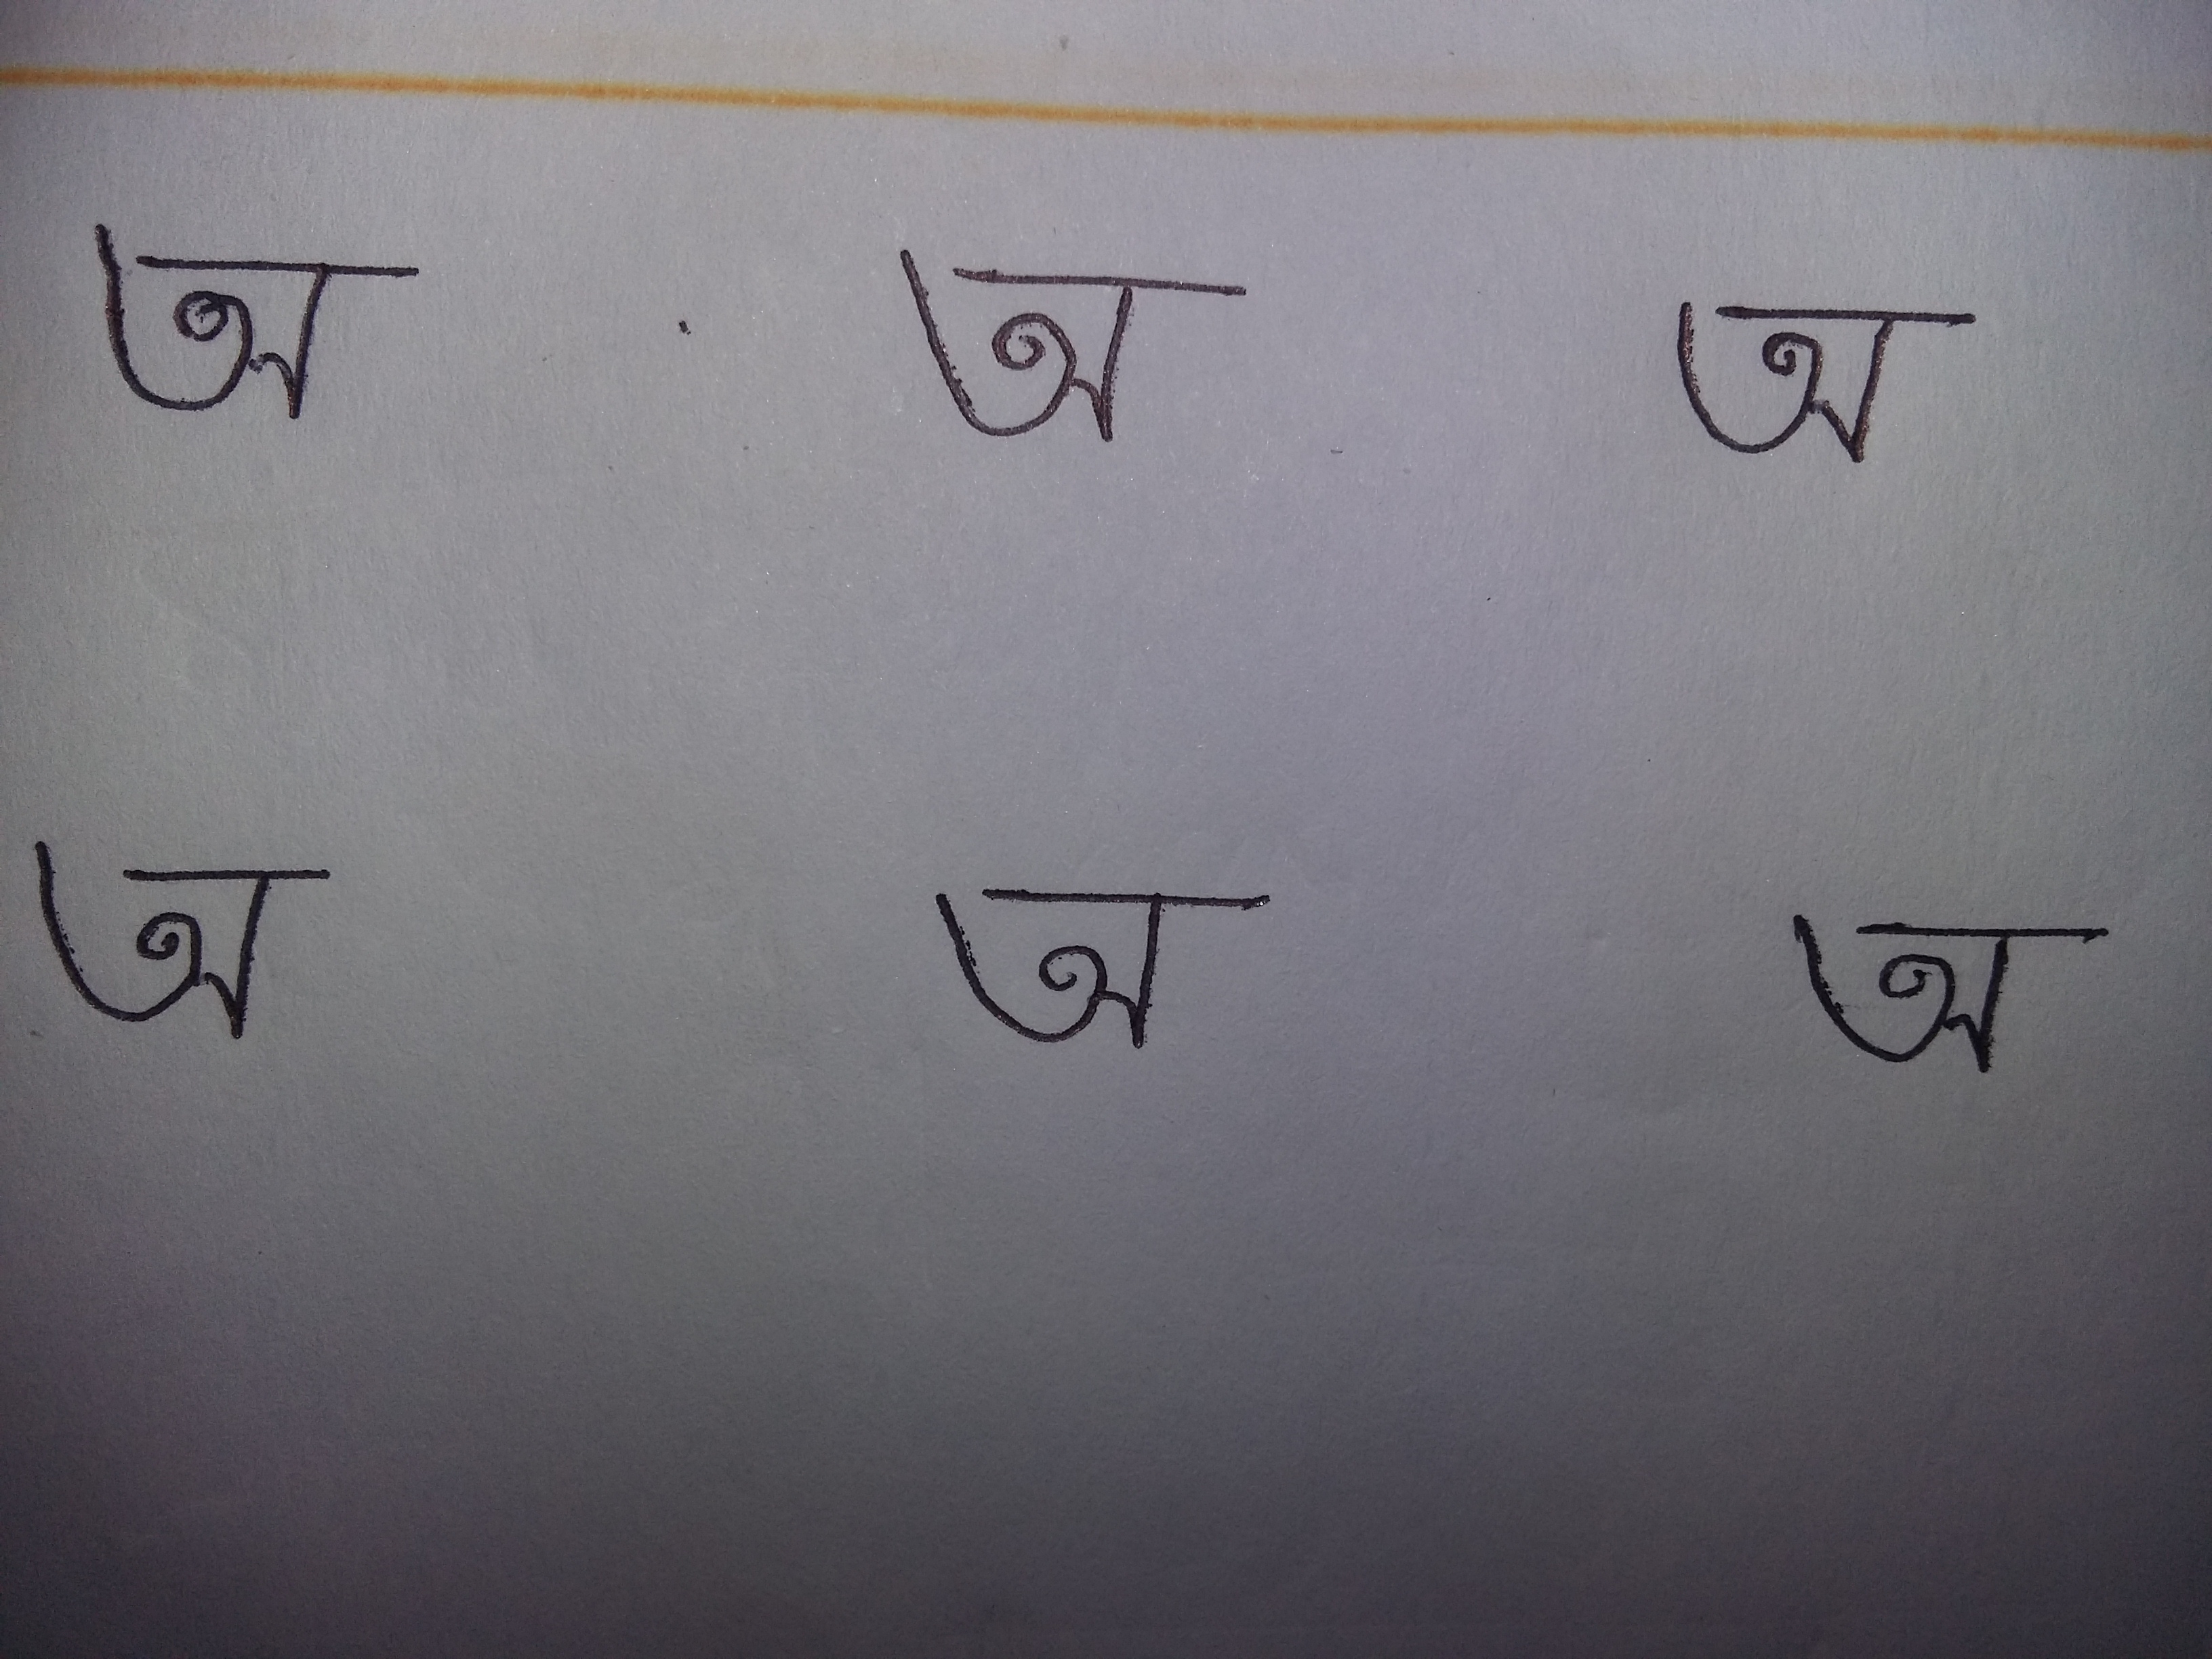 অ অ অ
অ অ অ